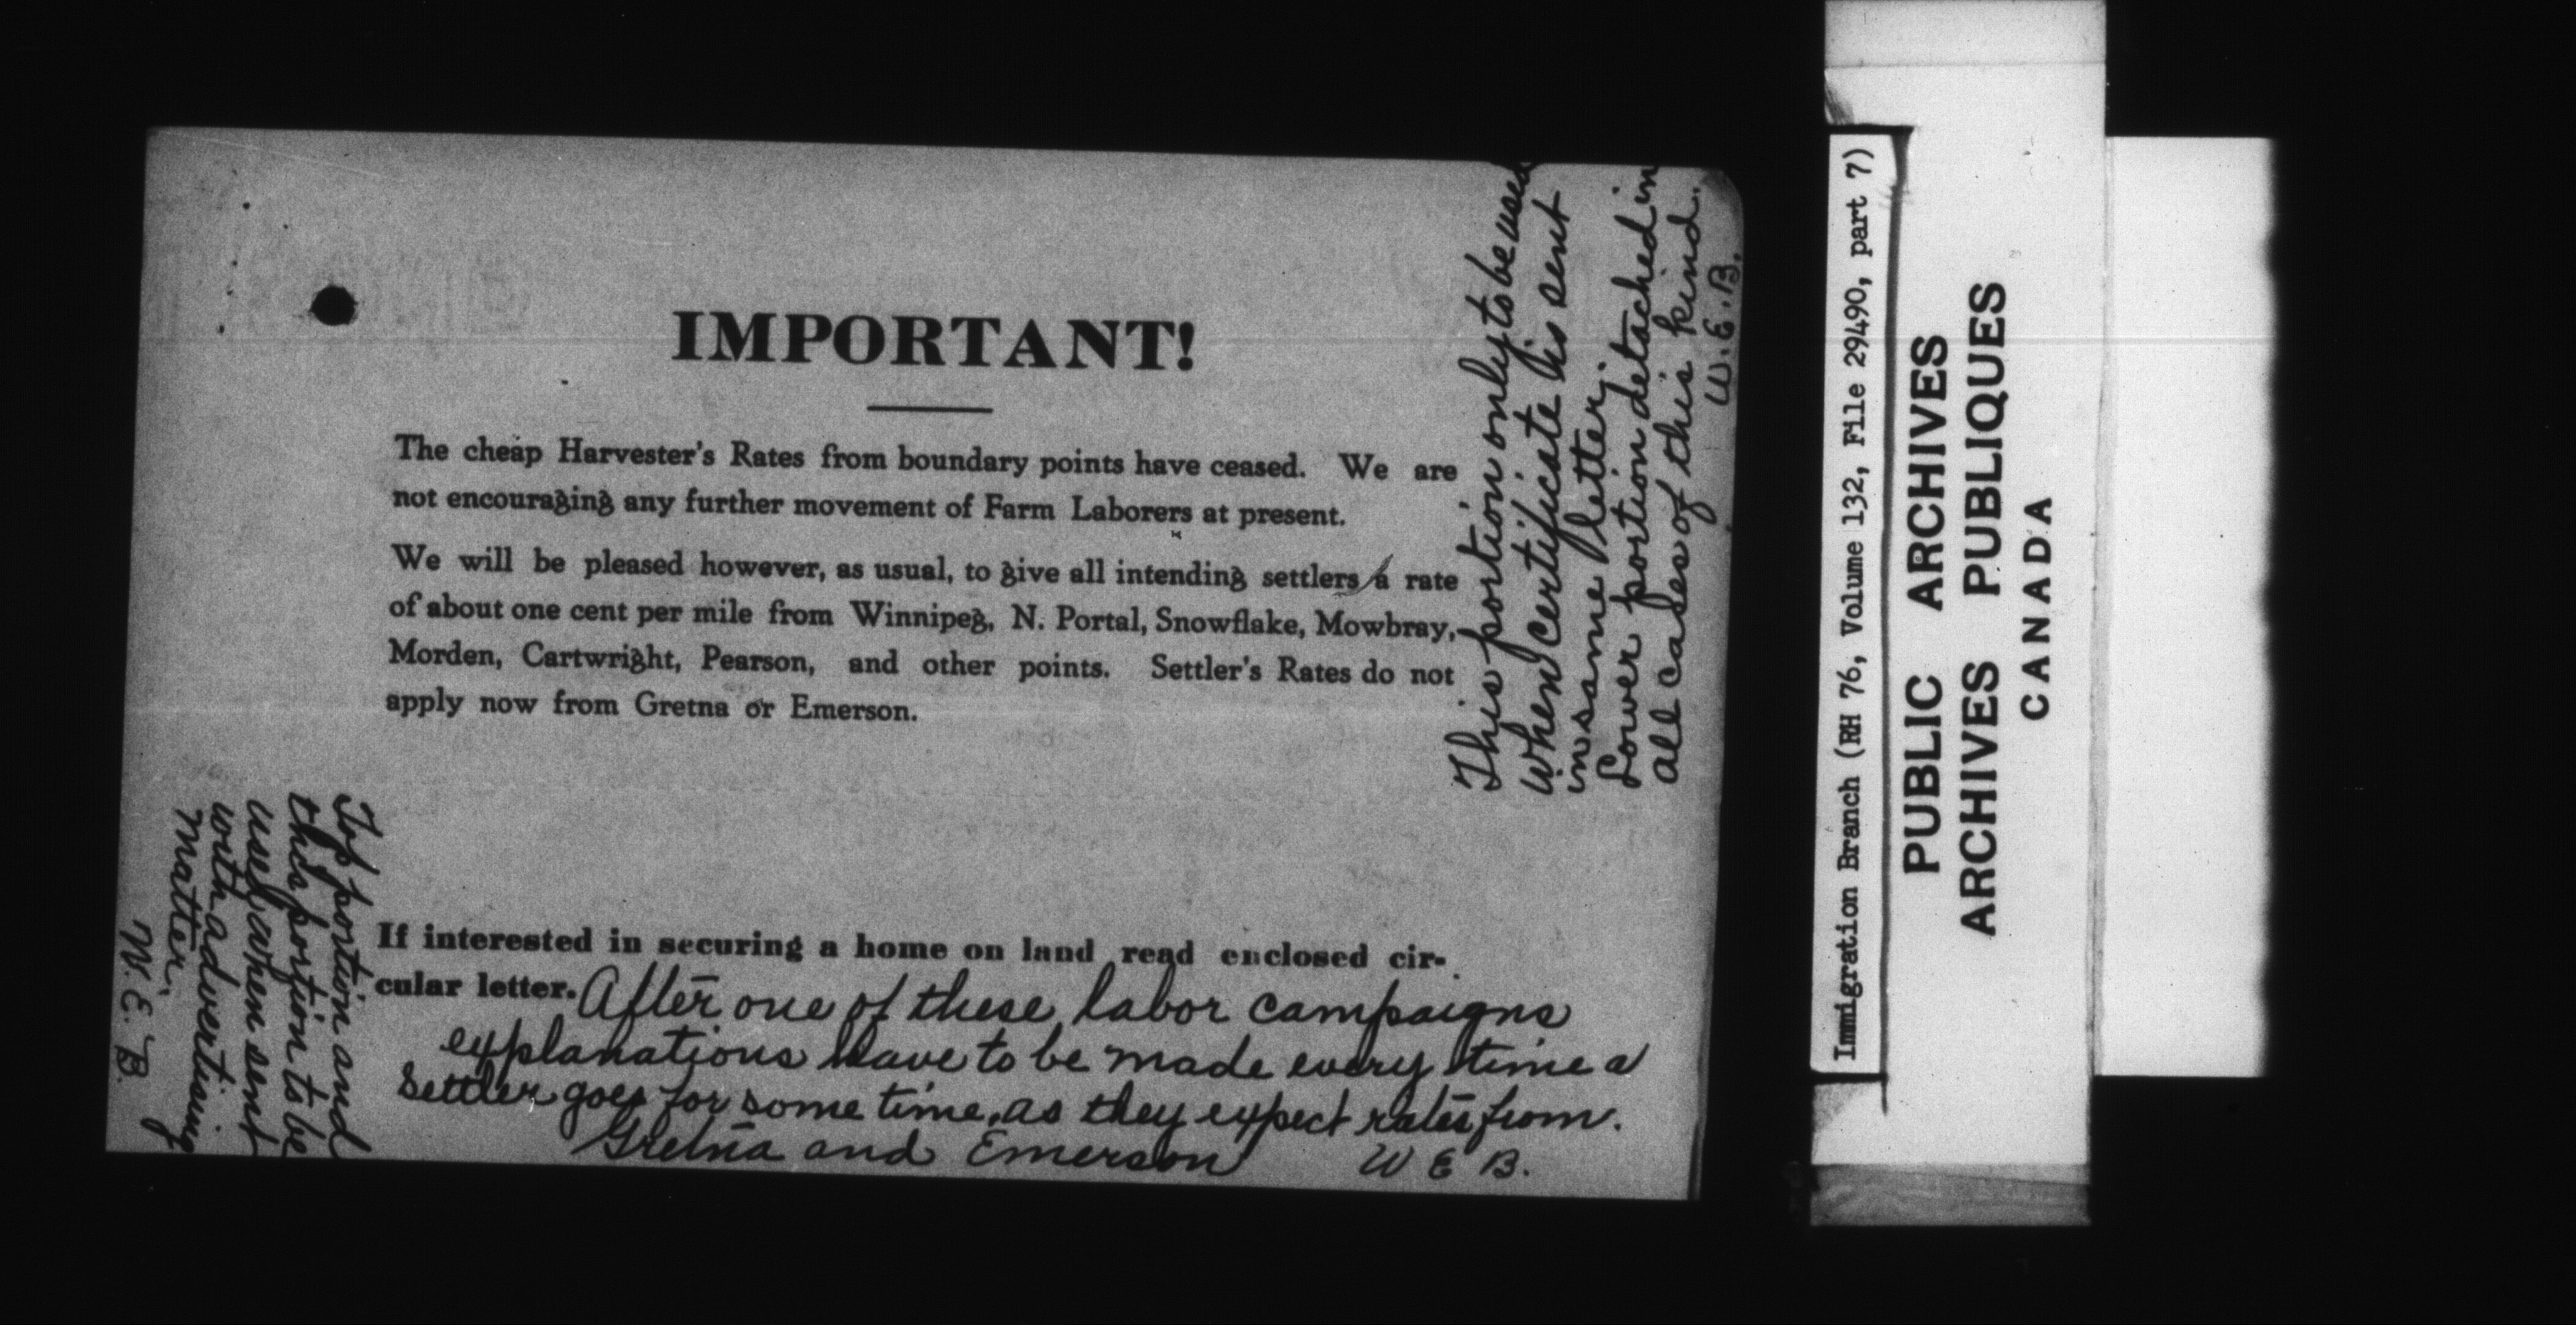 IMPORTANT!
The cheap Harvester's Rates from boundary points have ceased. We are
not encouraging any further movement of Farm Laborers at present.
We will be pleased however, as usual, to give all intending settlers a rate
of about one cent per mile from Winnipeg, N. Portal, Snowflake, Mowbray,
Morden, Cartwright, Pearson, and other points. Settler's Rates do not
apply now from Gretna or Emerson.
This portion only to be used
when certificate is sent
in same letter.
Lower portion detached in
all cases of this kind.
W.E.B.
Top portion and
this portion to be
used when sent
with advertising
matter.
W.E.B.
If interested in securing a home on land read enclosed cir-
cular letter. After one of these labor campaigns
explanations have to be made every time a
settler goes for some time, as they expect rates from
Gretna and Emerson W E B.
Immigration Branch (RH 76, Volume 132, File 29490, part 7)
PUBLIC ARCHIVES
ARCHIVES PUBLIQUES
CANADA